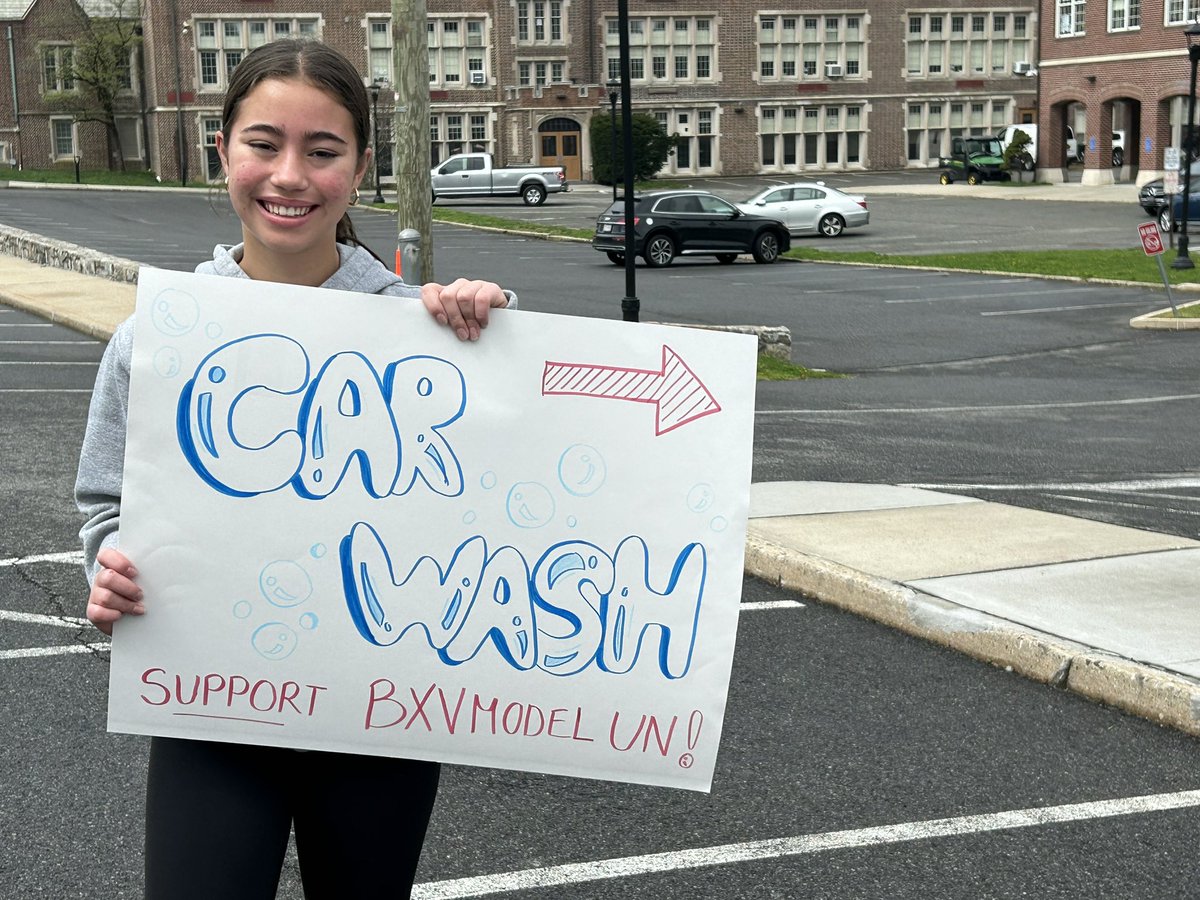 CAR
WASH
SUPPORT BXV MODEL UN!